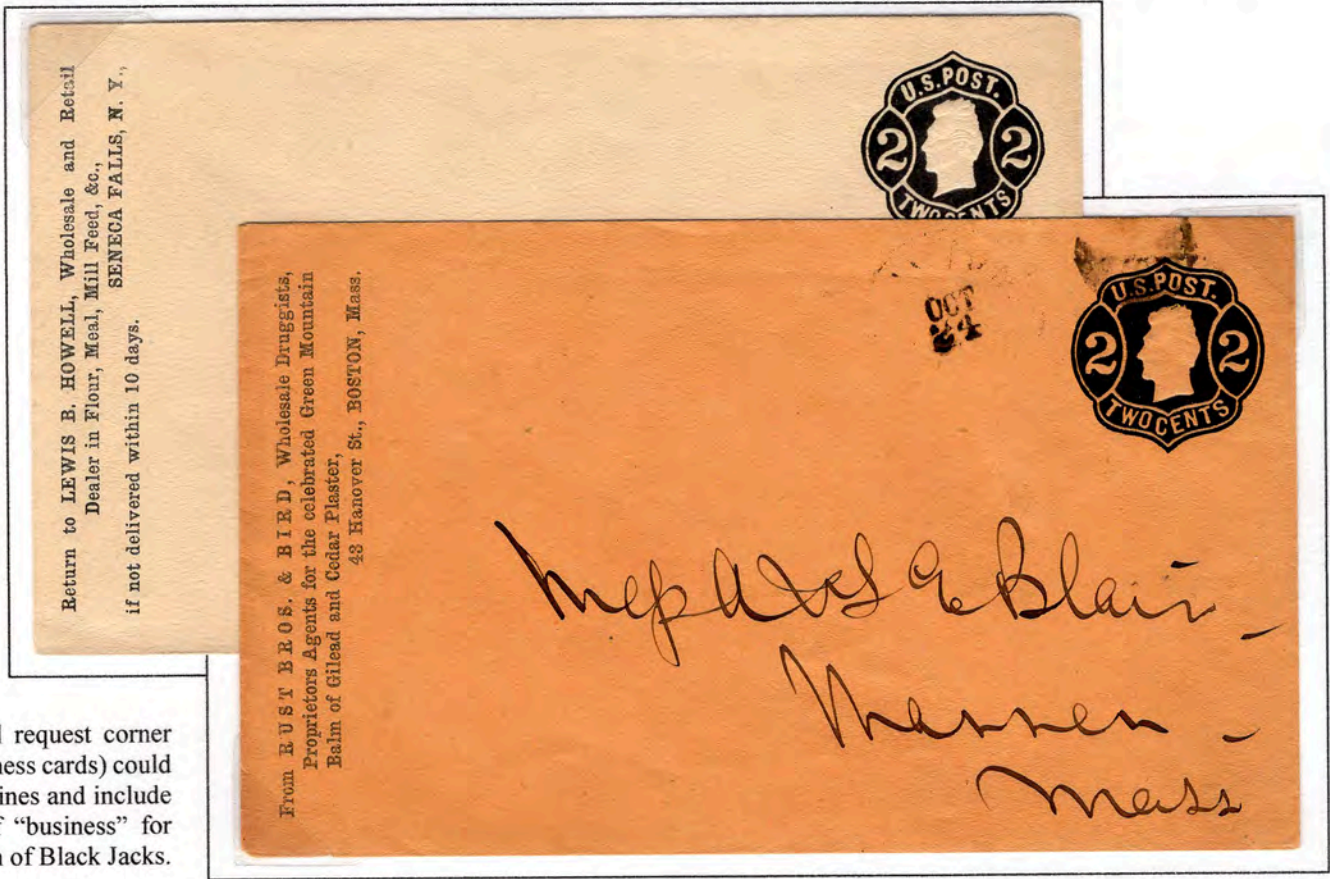 Return to LEWIS B. HOWELL, Wholesale and Retail
Dealer in Flour, Meal, Mill Feed, &c.,
SENECA FALLS, N. Y.,
if not delivered within 10 days.
U.S.POST.
2 2
TWO CENTS
From RUST BROS. & BIRD, Wholesale Druggists,
Proprietors Agents for the celebrated Green Mountain
Balm of Gilead and Cedar Plaster,
43 Hanover St., BOSTON, Mass.
OCT
24
U.S.POST.
2 2
TWO CENTS
Blair
Warren
Mass
request corner
ness cards) could
ines and include
"business" for
of Black Jacks.